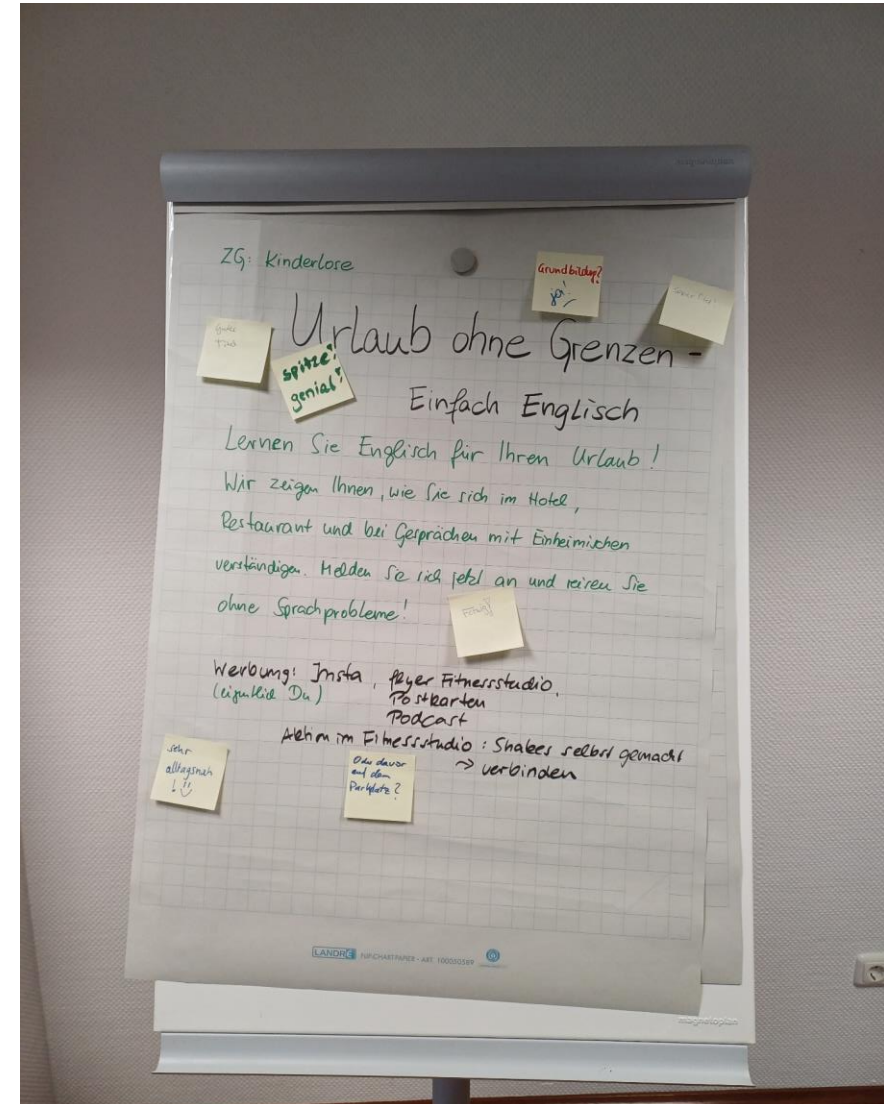 magnetoplan
ZG: Kinderlose
Grundbildung?
ja!
Super Titel!
guter
Titel
spitze!
genial!
Urlaub ohne Grenzen -
Einfach Englisch
Lernen Sie Englisch für Ihren Urlaub!
Wir zeigen Ihnen, wie Sie sich im Hotel,
Restaurant und bei Gesprächen mit Einheimischen
verständigen. Melden Sie sich jetzt an und reisen Sie
ohne Sprachprobleme!
Werbung: Insta, flyer Fitnessstudio,
(eigentlich Du)
Postkarten
Podcast
Aktion im Fitnessstudio: Shakes selbst gemacht
→ verbinden
sehr
alltagsnah
!
Oder davor
auf dem
Parkplatz?
LANDRÉ FLIPCHARTPAPIER - ART. 100050589
magnetoplan